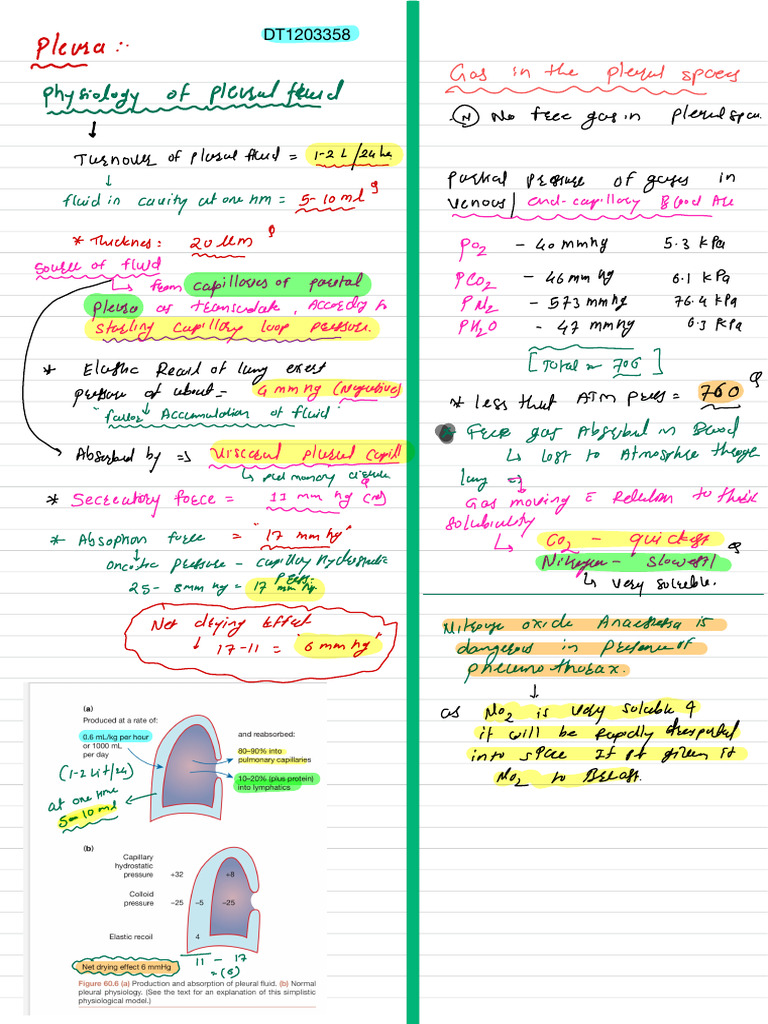 DT1203358
Pleura :-
Physiology of Pleural fluid
↓
Turnover of pleural fluid = 1-2 L/24 hr.
↓
fluid in cavity at one = 5-10 ml
* Thickness: 20
Source of fluid
↳ from capillaries of parietal
pleura as transudate, According to
starling capillary loop pressure.
* Elastic Recoil of lung exert
pressure of about = 4 mmHg (Negative)
"favor Accumulation of fluid"
Absorbed by => visceral pleural capill
↳ pulmonary
* Secreatory force = 11 mm hg
* Absoption force = "17 mmhg"
oncotic pressure - capillary hydrostatic
press.
25 - 8mm hg = 17 mm hg.
Net drying Effect
↓ 17-11 = "6 mmhg"
(a)
Produced at a rate of:
0.6 mL/kg per hour
or 1000 mL
per day
(1-2 Lit/24)
at one time
5-10 ml
and reabsorbed:
80–90% into
pulmonary capillaries
10–20% (plus protein)
into lymphatics
(b)
Capillary
hydrostatic
pressure +32 +8
Colloid
pressure –25 –5 –25
Elastic recoil 4
11 - 17
= (6)
Net drying effect 6 mmHg
Figure 60.6 (a) Production and absorption of pleural fluid. (b) Normal
pleural physiology. (See the text for an explanation of this simplistic
physiological model.)
Gas in the pleural spaces
(N) No free gas in pleural space.
Partial pressure of gases in
venous/ end-capillary Blood Are
PO2 - 40 mmhg 5.3 kPa
PCO2 - 46 mm hg 6.1 kPa
PN2 - 573 mmhg 76.4 kPa
PH2O - 47 mmhg 6.3 kPa
[Total = 706]
* less that ATM press = 760
Free gas Absorbed in Blood
↳ Lost to Atmosphere through
lung =>
Gas moving Relation to their
solubility
↳ CO2 - quickest
Nitrogen - slowest
↳ very soluble.
Nitrous oxide Anaesthesia is
dangerous in presence of
pneumothorax.
↓
as NO2 is very soluble &
it will be rapidly
into space If pt given it
NO2 to